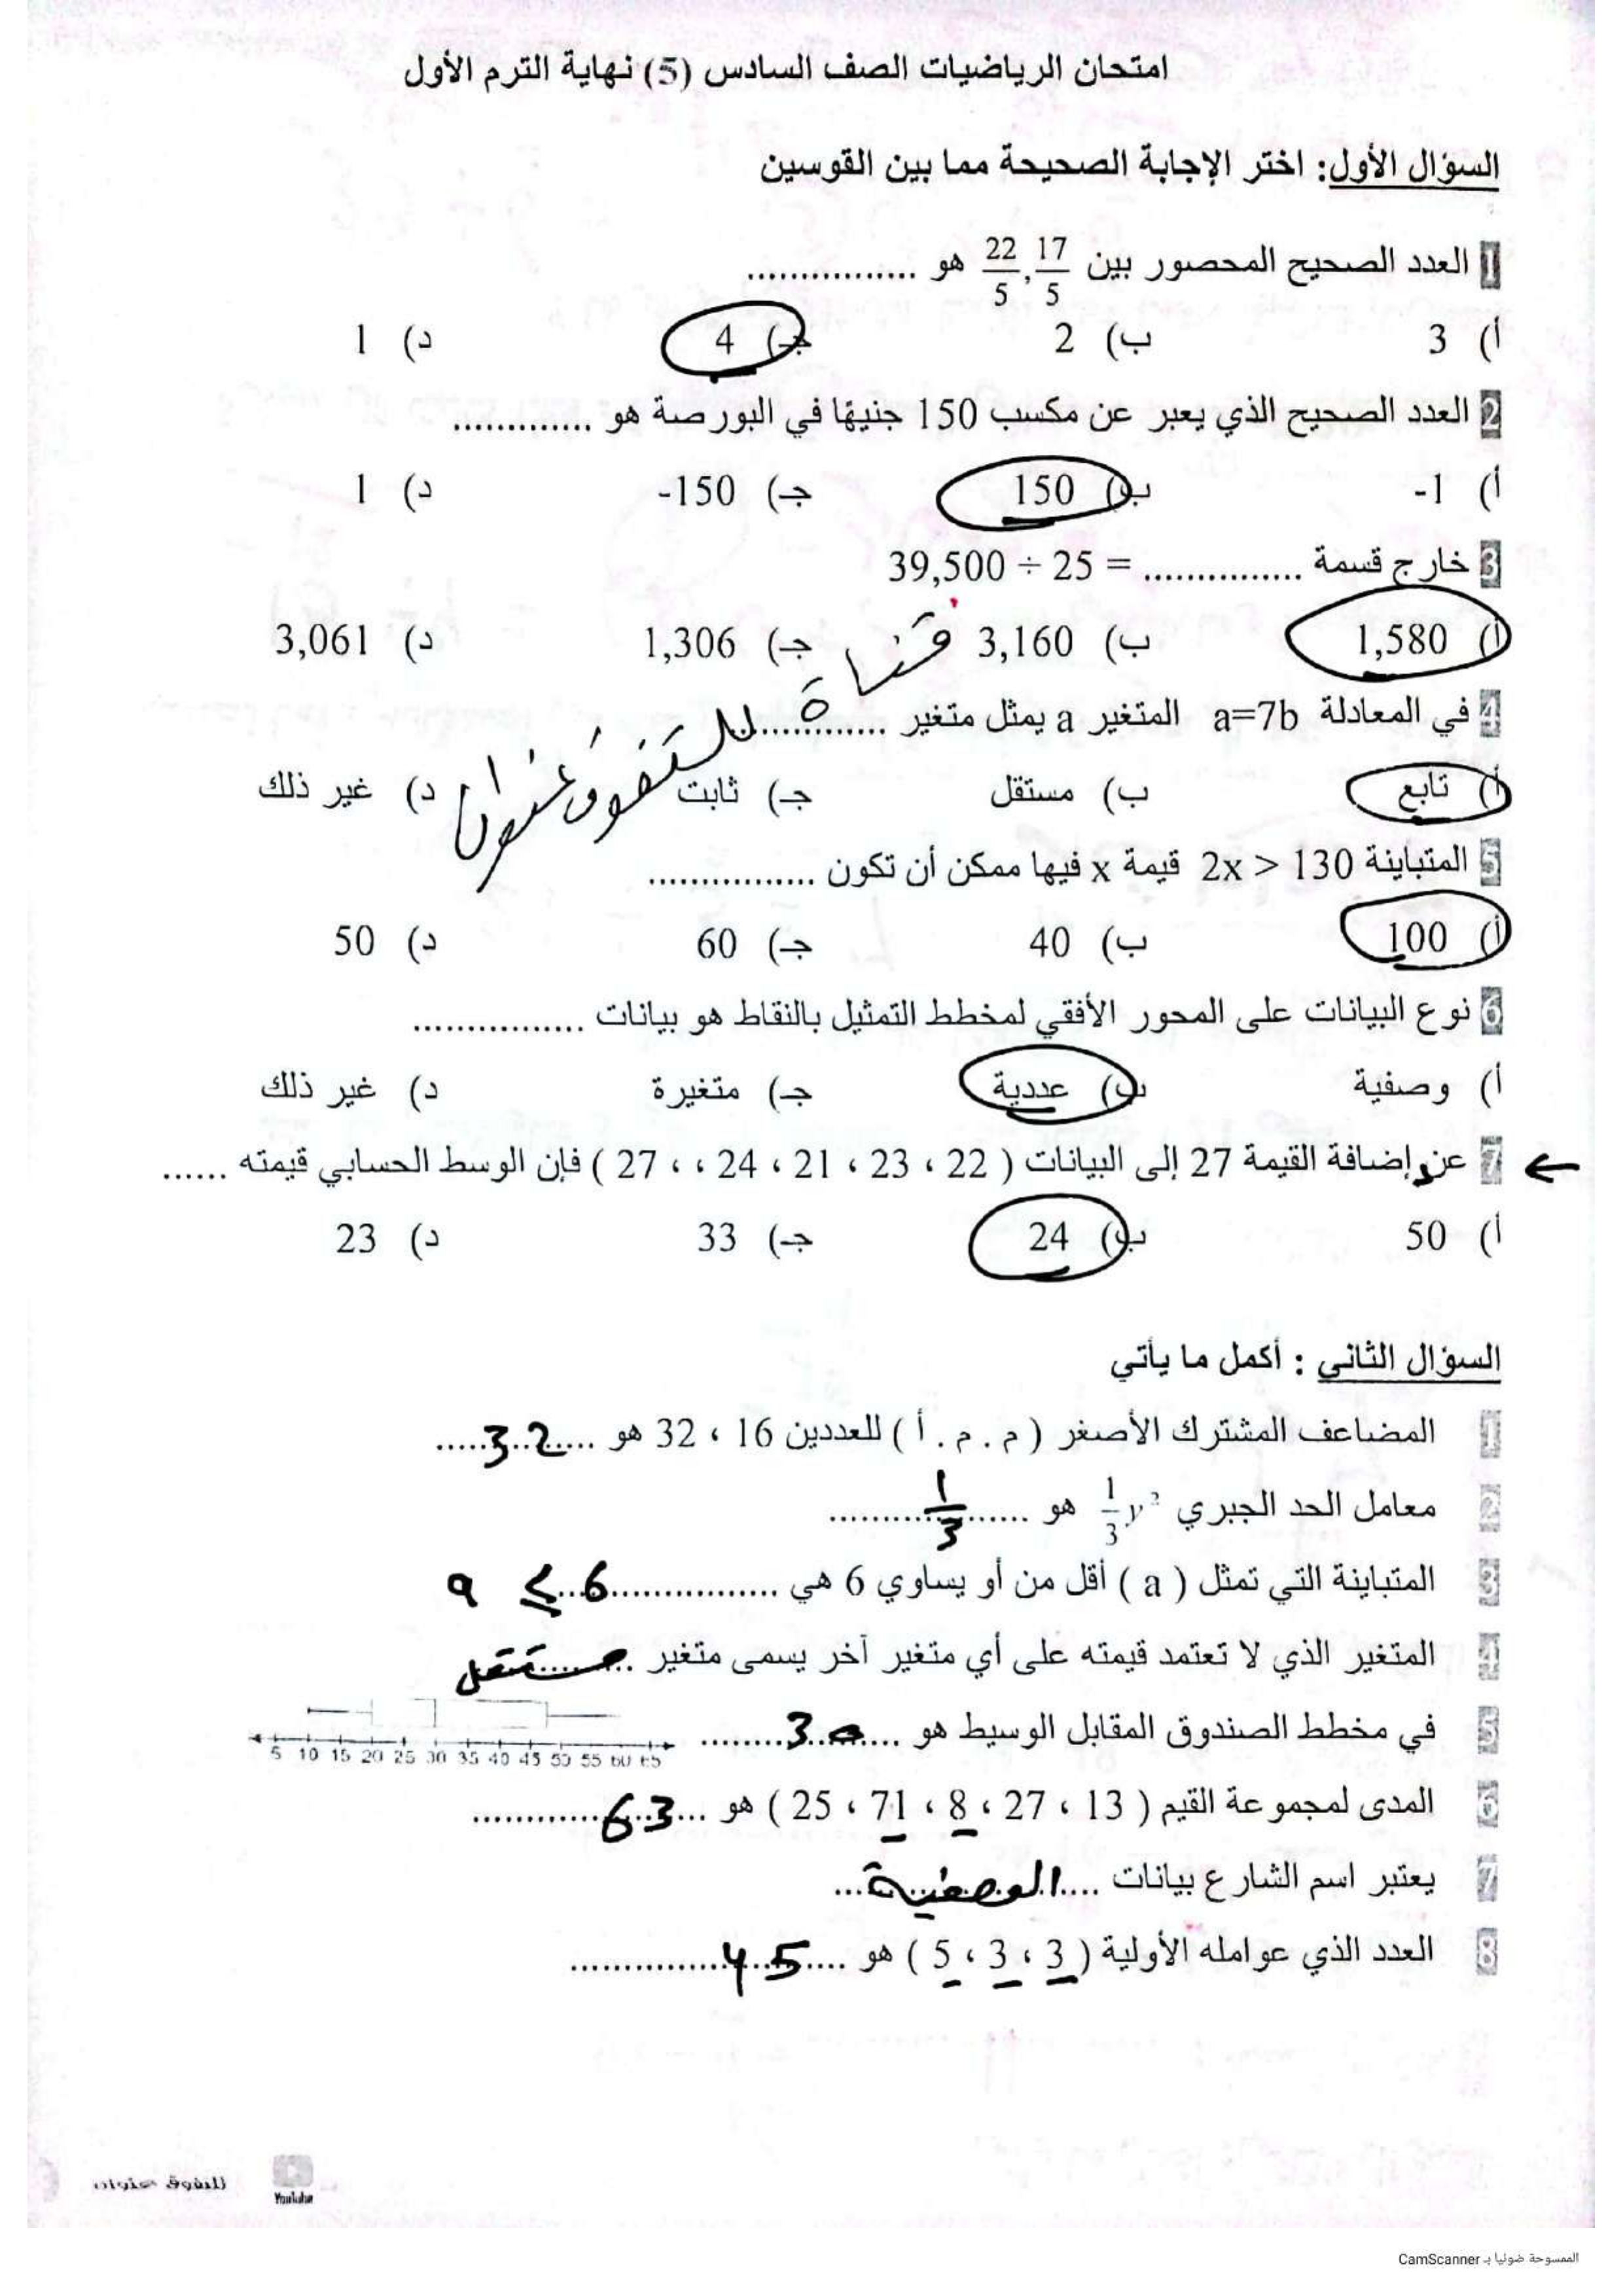 امتحان الرياضيات الصف السادس (5) نهاية الترم الأول
السؤال الأول: اختر الإجابة الصحيحة مما بين القوسين
1 العدد الصحيح المحصور بين 17/5 , 22/5 هو ................
أ) 3 ب) 2 جـ) 4 د) 1
2 العدد الصحيح الذي يعبر عن مكسب 150 جنيهًا في البورصة هو .............
أ) -1 ب) 150 جـ) -150 د) 1
3 خارج قسمة ............... = 39,500 ÷ 25
أ) 1,580 ب) 3,160 جـ) 1,306 د) 3,061
قناة للتفوق عنوان
4 في المعادلة a=7b المتغير a يمثل متغير .............
أ) تابع ب) مستقل جـ) ثابت د) غير ذلك
5 المتباينة 2x > 130 قيمة x فيها ممكن أن تكون ................
أ) 100 ب) 40 جـ) 60 د) 50
6 نوع البيانات على المحور الأفقي لمخطط التمثيل بالنقاط هو بيانات ................
أ) وصفية ب) عددية جـ) متغيرة د) غير ذلك
← 7 عند إضافة القيمة 27 إلى البيانات ( 22 ، 23 ، 21 ، 24 ، ، 27 ) فإن الوسط الحسابي قيمته ......
أ) 50 ب) 24 جـ) 33 د) 23
السؤال الثاني : أكمل ما يأتي
1 المضاعف المشترك الأصغر ( م . م . أ ) للعددين 16 ، 32 هو .....32.....
2 معامل الحد الجبري 1/3 y² هو ......1/3.........
3 المتباينة التي تمثل ( a ) أقل من أو يساوي 6 هي ................ a ≤ 6
4 المتغير الذي لا تعتمد قيمته على أي متغير آخر يسمى متغير ...مستقل
5 في مخطط الصندوق المقابل الوسيط هو .....30........
5 10 15 20 25 30 35 40 45 50 55 60 65
6 المدى لمجموعة القيم ( 13 ، 27 ، 8 ، 71 ، 25 ) هو ...63............
7 يعتبر اسم الشارع بيانات ....الوصفية...
8 العدد الذي عوامله الأولية ( 3 ، 3 ، 5 ) هو .....45................
للتفوق عنوان
YouTube
الممسوحة ضوئيا بـ CamScanner